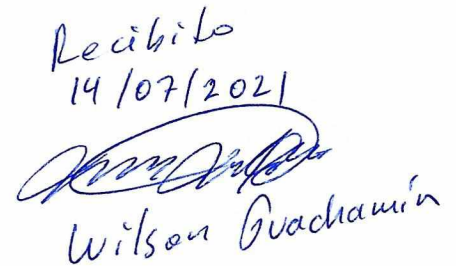 Recibido
14/07/2021
Wilson Guachamín